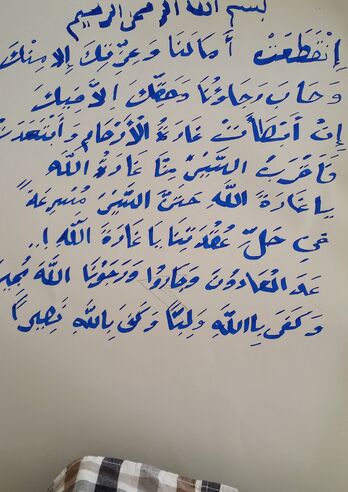 بسم الله الرحمن الرحيم
إنْقَطَعَتْ أمالنا وعزتك إلا منك
وخاب رجاؤنا وحقك الا فيك
إن أبطأت غارة الأرحام وابتعدت
فأقرب السير منا غارة الله
يا غارة الله حثي السير مسرعة
في حل عقدتنا يا غارة الله !..
عد العادون وجاروا ورجونا الله مجيرا
وكفى بالله وليًا وكفى بالله نصيرًا